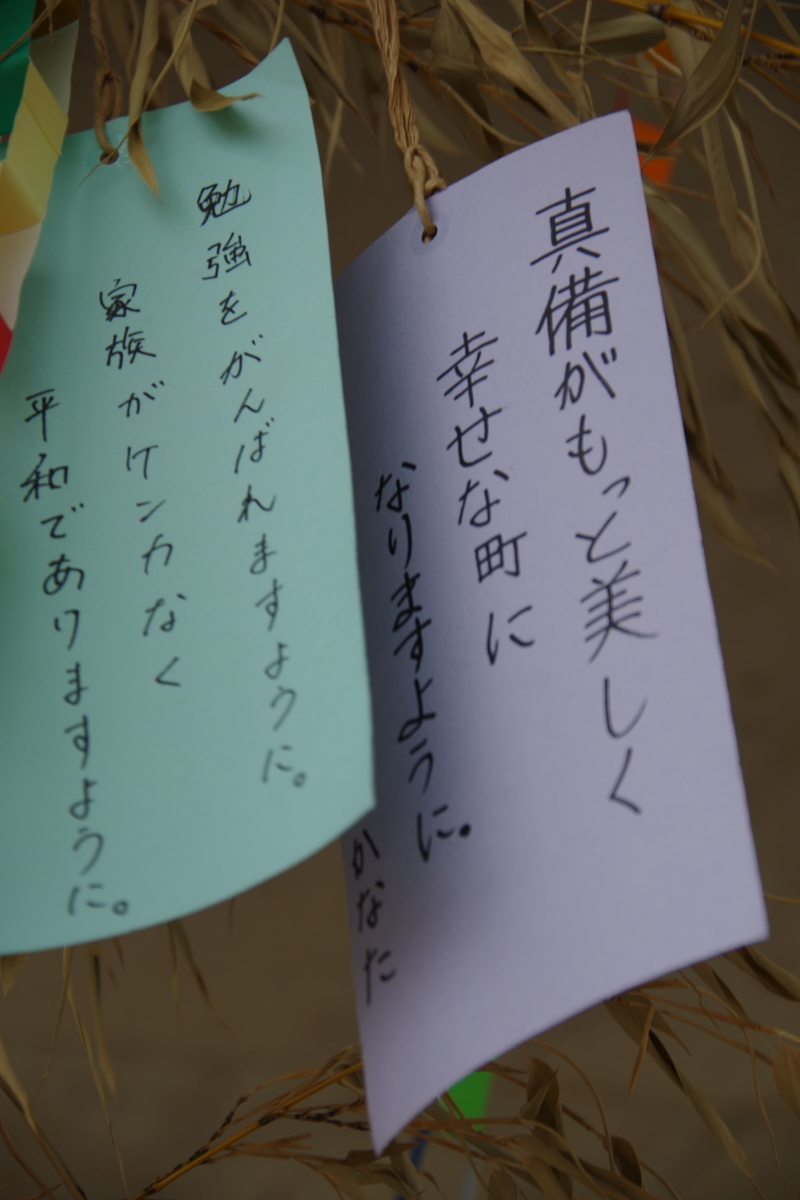 真備がもっと美しく
幸せな町に
なりますように。
かなた
勉強をがんばれますように。
家族がケンカなく
平和でありますように。